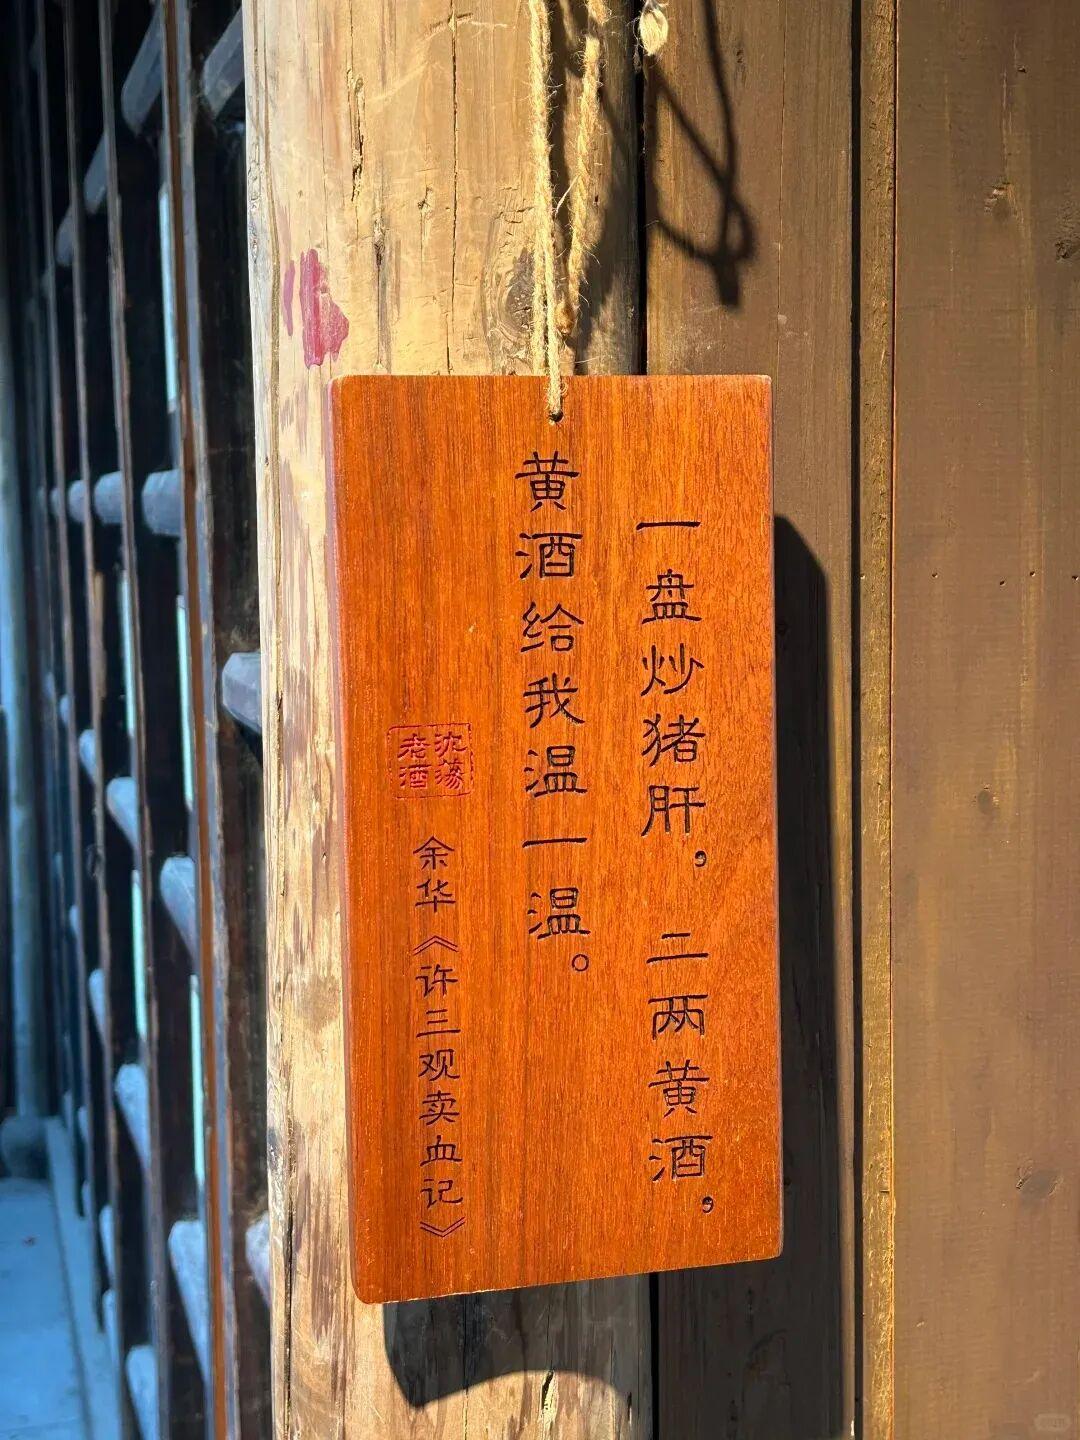 一盘炒猪肝，二两黄酒，
黄酒给我温一温。
沈荡
老酒
余华《许三观卖血记》